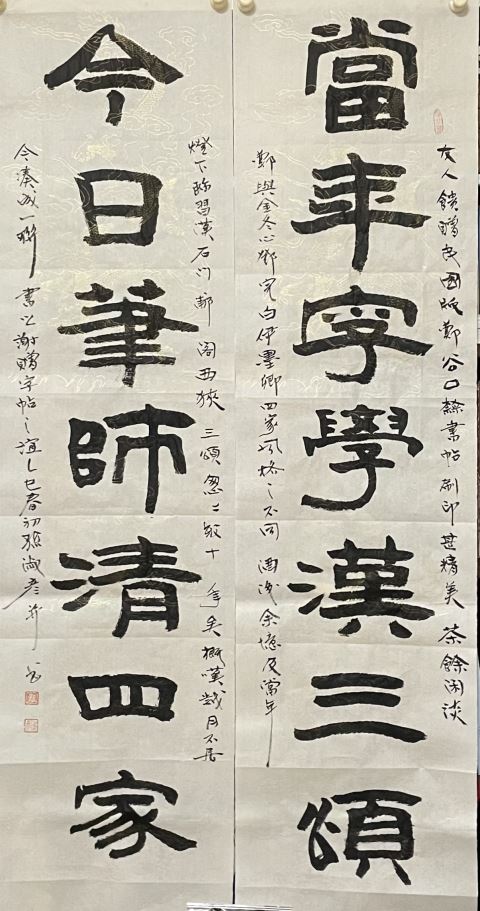 友人饋贈民國版鄭谷口隸書帖刷印甚精美茶餘閑談
當年字學漢三頌
鄭與金冬心鄧完白伊墨卿四家風格之不同酒後余憶及當年
燈下臨習漢石门郙閣西狹三頌忽〻數十年矣概嘆歲月不居
今日筆師清四家
今湊成一聯書以謝贈字帖之誼乙巳春初孫淑彥并書